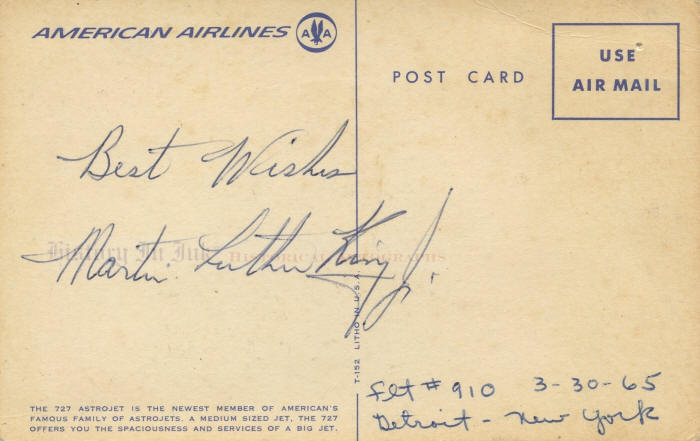 AMERICAN AIRLINES AA
POST CARD
USE
AIR MAIL
Best Wishes
History In Ink HISTORICAL AUTOGRAPHS
Martin Luther King Jr.
T-152 LITHO IN U.S.A.
Flt # 910 3-30-65
Detroit - New York
THE 727 ASTROJET IS THE NEWEST MEMBER OF AMERICAN'S
FAMOUS FAMILY OF ASTROJETS. A MEDIUM SIZED JET, THE 727
OFFERS YOU THE SPACIOUSNESS AND SERVICES OF A BIG JET.